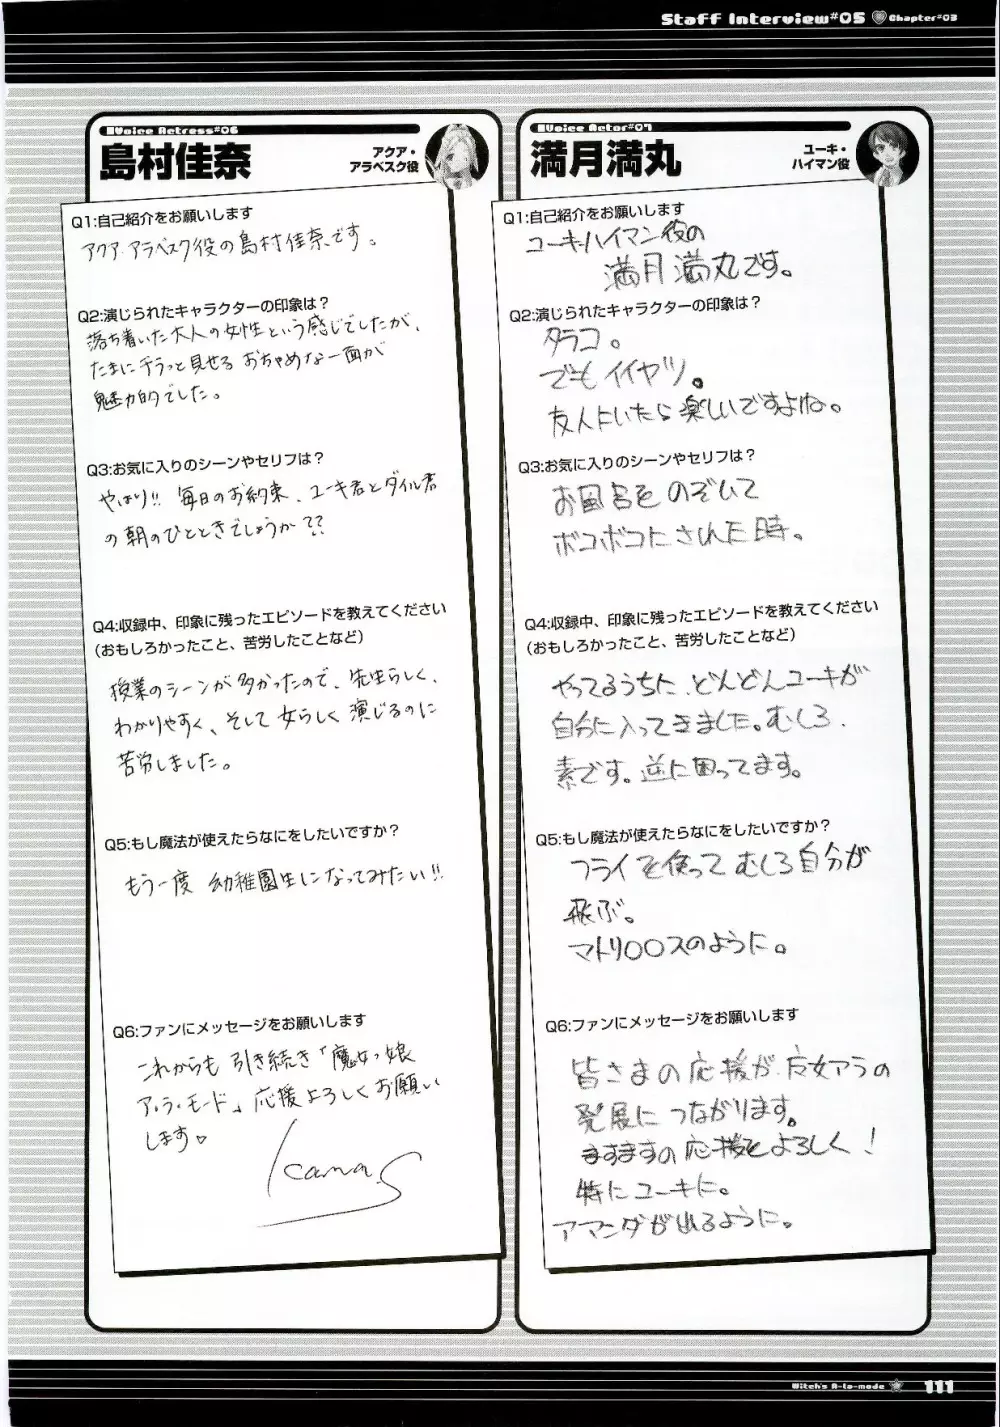 Staff Interview#05 Chapter#03
Voice Actress#06
島村佳奈
アクア・
アラベスク役
Q1:自己紹介をお願いします
アクア・アラベスク役の島村佳奈です。
Q2:演じられたキャラクターの印象は?
落ち着いた大人の女性という感じでしたが、
たまにチラっと見せるおちゃめな一面が
魅力的でした。
Q3:お気に入りのシーンやセリフは?
やはり!!毎日のお約束、ユーキ君とダイル君
の朝のひとときでしょうか??
Q4:収録中、印象に残ったエピソードを教えてください
(おもしろかったこと、苦労したことなど)
授業のシーンが多かったので、先生らしく、
わかりやすく、そして女らしく演じるのに
苦労しました。
Q5:もし魔法が使えたらなにをしたいですか?
もう一度 幼稚園生になってみたい!!
Q6:ファンにメッセージをお願いします
これからも引き続き「魔女っ娘
ア・ラ・モード」応援よろしくお願い
します♡
Kana.S
Voice Actor#07
満月満丸
ユーキ・
ハイマン役
Q1:自己紹介をお願いします
ユーキ・ハイマン役の
満月満丸です。
Q2:演じられたキャラクターの印象は?
タラコ。
でもイイヤツ。
友人にいたら楽しいですよね。
Q3:お気に入りのシーンやセリフは?
お風呂をのぞいて
ボコボコにされた時。
Q4:収録中、印象に残ったエピソードを教えてください
(おもしろかったこと、苦労したことなど)
やってるうちに、どんどんユーキが
自分に入ってきました。むしろ、
素です。逆に困ってます。
Q5:もし魔法が使えたらなにをしたいですか?
フライを使ってむしろ自分が
飛ぶ。
マトリ○○スのように。
Q6:ファンにメッセージをお願いします
皆さまの応援が、女アラの
発展につながります。
ますますの応援をよろしく!
特にユーキに。
アマンダが出るように。
Witch's A-la-mode 111